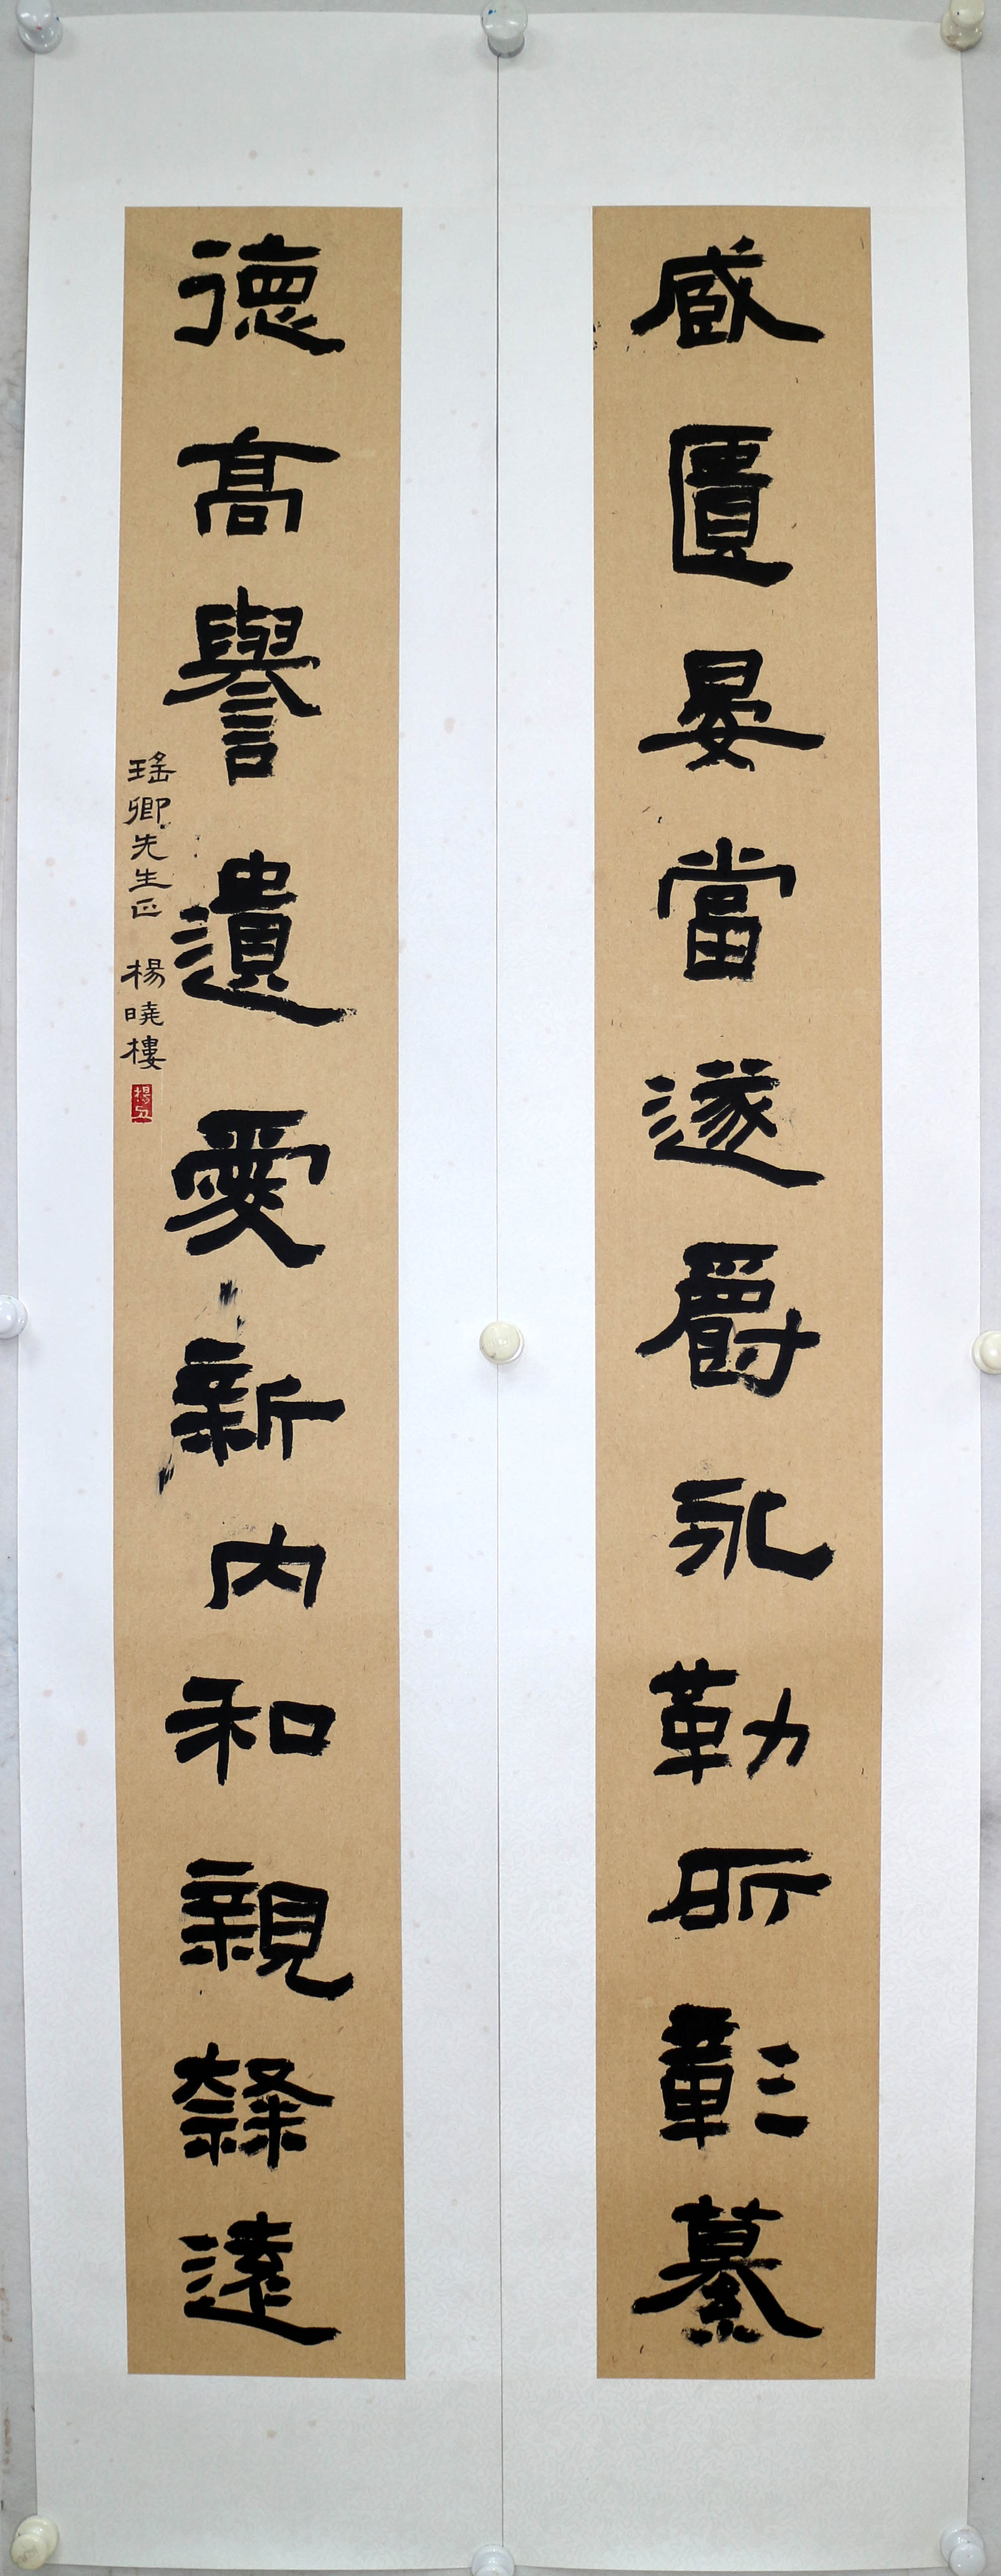 臧匱晏當遂爵永勒所彰慕
德高譽遺愛新内和親隸遠
瑤卿先生正 楊曉樓